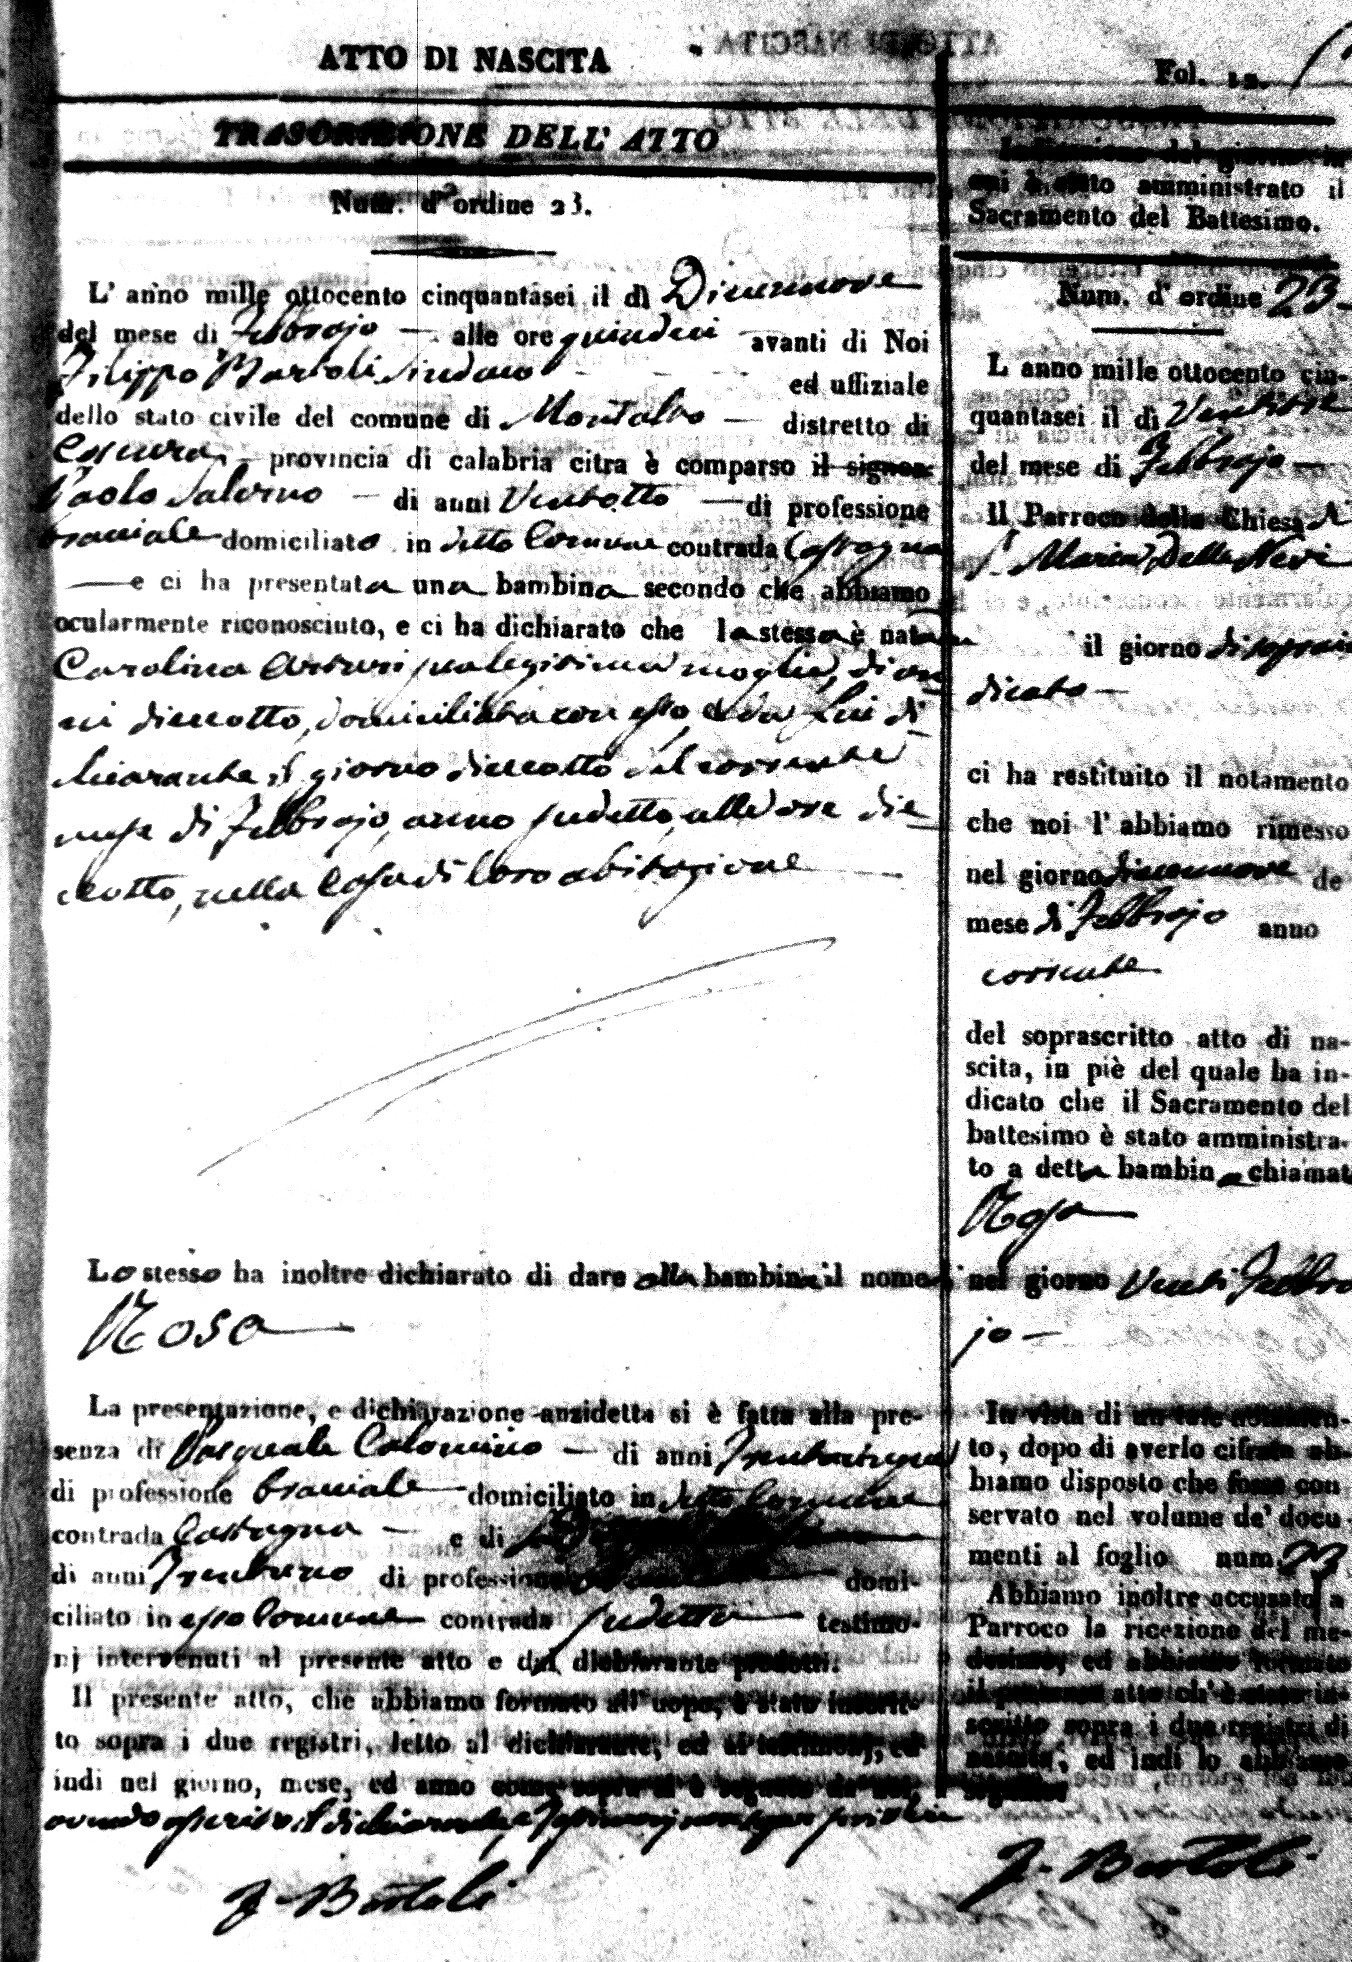 ATTO DI NASCITA
TRASCRIZIONE DELL' ATTO
Num. d'ordine 23.
L' anno mille ottocento cinquantasei il dì Diecennove
del mese di Febbrajo — alle ore quindici — avanti di Noi
Filippo Bartoli Sindaco ed uffiziale
dello stato civile del comune di Montalto — distretto di
Cosenza — provincia di calabria citra è comparso il signor
Paolo Salerno — di anni Ventotto — di professione
bracciale domiciliato in detto Comune contrada Castagna
— e ci ha presentata una bambina secondo che abbiamo
ocularmente riconosciuto, e ci ha dichiarato che la stessa è nata da
Carolina Arturi sua legitima moglie, di an
ni dieciotto, domiciliata con esso, e da Lui di
chiarante il giorno dieciotto del corrente
mese di Febbrajo, anno sudetto, alle ore die
ciotto, nella Casa di loro abitazione
Lo stesso ha inoltre dichiarato di dare alla bambina il nome di
Rosa
La presentazione, e dichiarazione anzidetta si è fatta alla pre-
senza di Pasquale Colomiio — di anni Trentacinque
di professione bracciale domiciliato in detto Comune
contrada Castagna — e di
di anni Trentuno di professione domi-
ciliato in esso Comune contrada sudetta testimo-
nj intervenuti al presente atto e dal dichiarante prodotti.
Il presente atto, che abbiamo formato all' uopo, è stato inscrit-
to sopra i due registri, letto al dichiarante, ed ai testimonj, ed
indi nel giorno, mese, ed anno come sopra si è segnato da noi,
avendo asserito il dichiarante, e Testimonj non saper scrivere
F. Bartoli
Fol. 12.
Indicazione del giorno in
cui è stato amministrato il
Sacramento del Battesimo.
Num. d' ordine 23
L anno mille ottocento cin-
quantasei il dì Ventitre
del mese di Febbrajo —
Il Parroco della Chiesa di
S. Maria Della Nevi
il giorno di sopra in
dicato —
ci ha restituito il notamento
che noi l' abbiamo rimesso
nel giorno diecennove de
mese di Febbrajo anno
corrente
del soprascritto atto di na-
scita, in piè del quale ha in-
dicato che il Sacramento del
battesimo è stato amministra-
to a detta bambina chiamat
Rosa
nel giorno Venti Febbra
jo —
In vista di un tale notamen-
to, dopo di averlo cifrato ab-
biamo disposto che fosse con
servato nel volume de' docu
menti al foglio num. 23
Abbiamo inoltre accusato a
Parroco la ricezione del me-
desimo, ed abbiamo formato
il presente atto ch' è stato in-
scritto sopra i due registri di
nascita, ed indi lo abbiamo
segnato
F. Bartoli